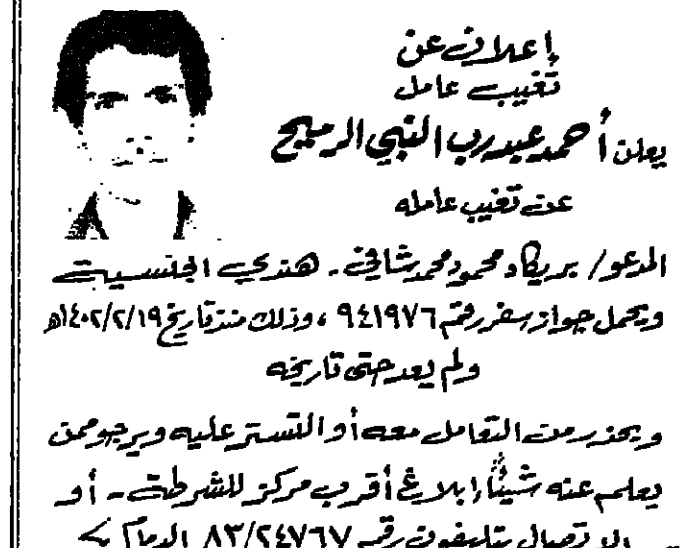 إعلان عن
تغيب عامل
يعلن أحمد عبدرب النبي الرميح
عن تغيب عامله
المدعو/ بريكاد محمود محمد شافي - هندي الجنسية
ويحمل جواز سفر رقم ٩٤١٩٧٦ ، وذلك منذ تاريخ ١٤٠٢/٢/١٩هـ
ولم يعد حتى تاريخه
ويحذر من التعامل معه أو التستر عليه ويرجو ممن
يعلم عنه شيئاً إبلاغ أقرب مركز للشرطة - أو
الاتصال بتليفون رقم ٨٣/٢٤٧٦٧ الدمام